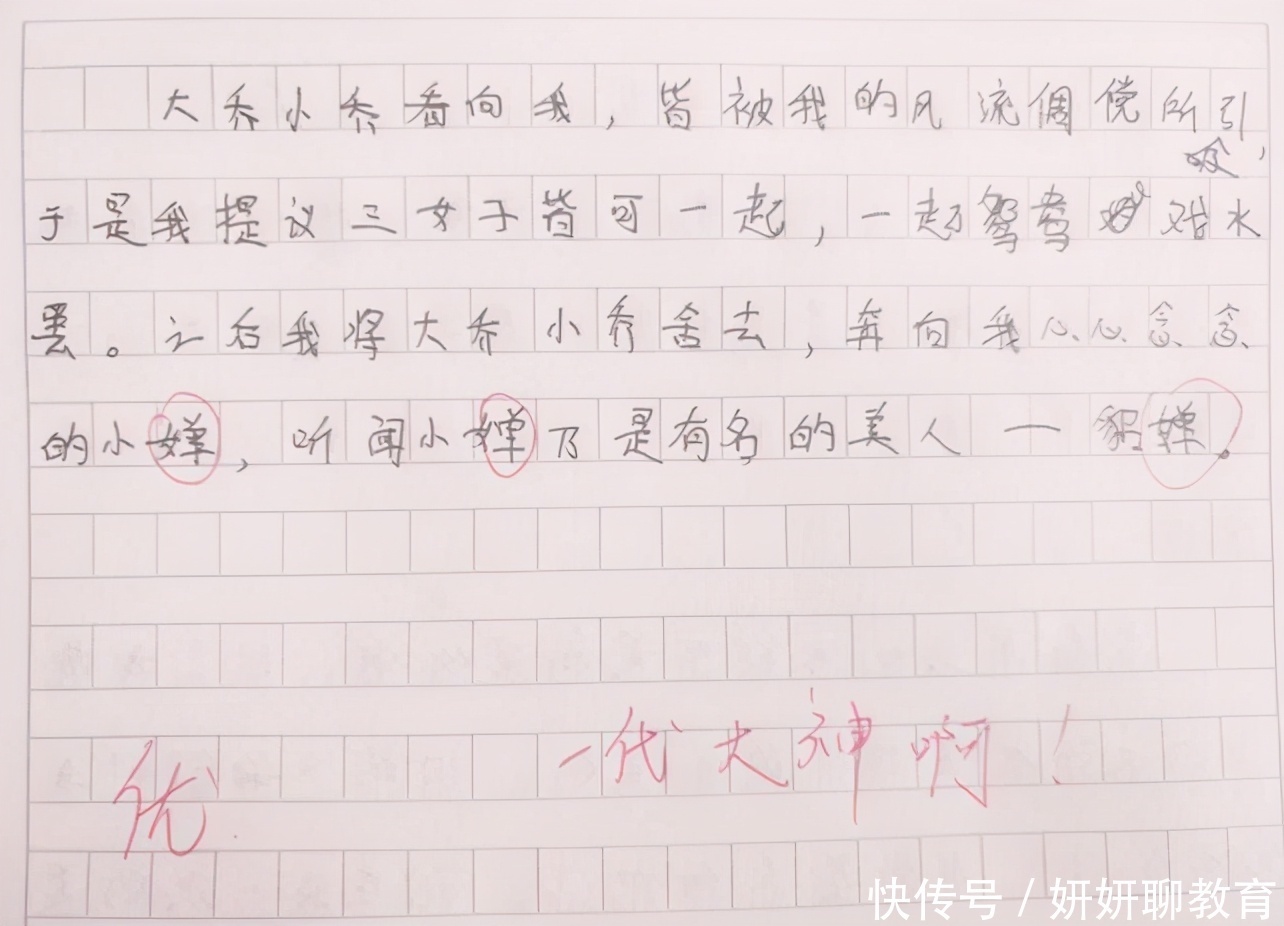 大乔小乔看向我，皆被我的风流倜傥所吸引，
于是我提议三女子皆可一起，一起鸳鸯戏水
罢。之后我将大乔小乔舍去，奔向我心心念念
的小婵，听闻小婵乃是有名的美人—貂婵。
一代大神啊！
优
快传号/妍妍聊教育